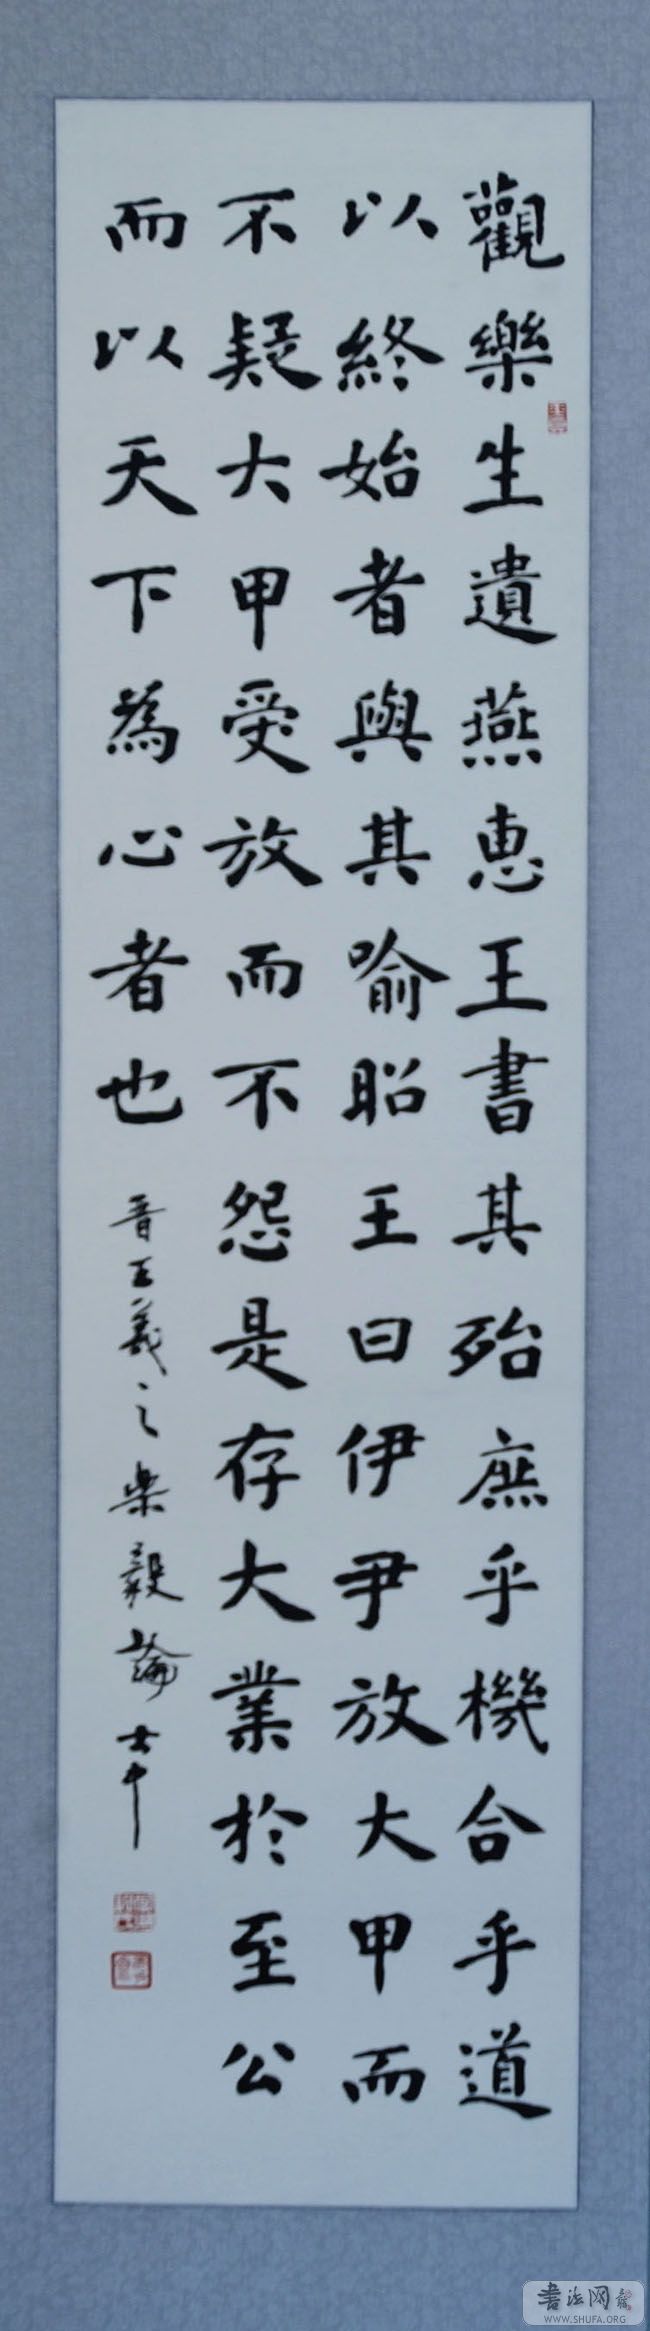 觀樂生遺燕惠王書其殆庶乎機合乎道
以終始者與其喻昭王曰伊尹放大甲而
不疑大甲受放而不怨是存大業於至公
而以天下為心者也
晋王羲之樂毅論
書法网
WWW.SHUFA.ORG